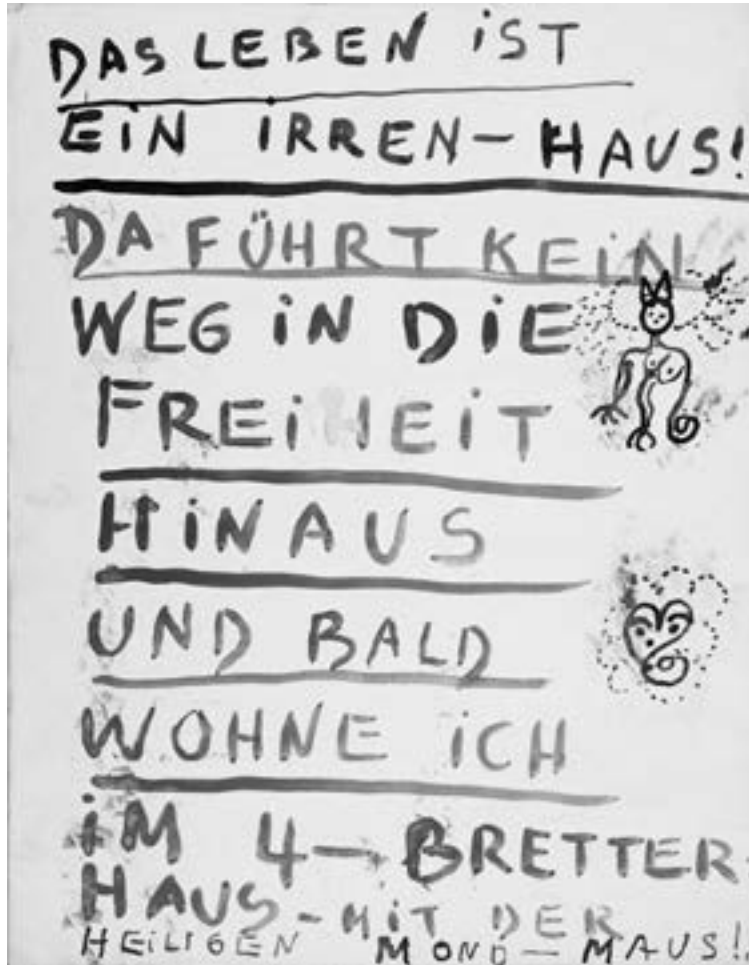 DAS LEBEN iST
EiN iRREN-HAUS!
DA FÜHRT KEiN
WEG iN DiE
FREiHEiT
HiNAUS
UND BALD
WOHNE iCH
iM 4-BRETTER-
HAUS-MiT DER
HEiLiGEN MOND-MAUS!!